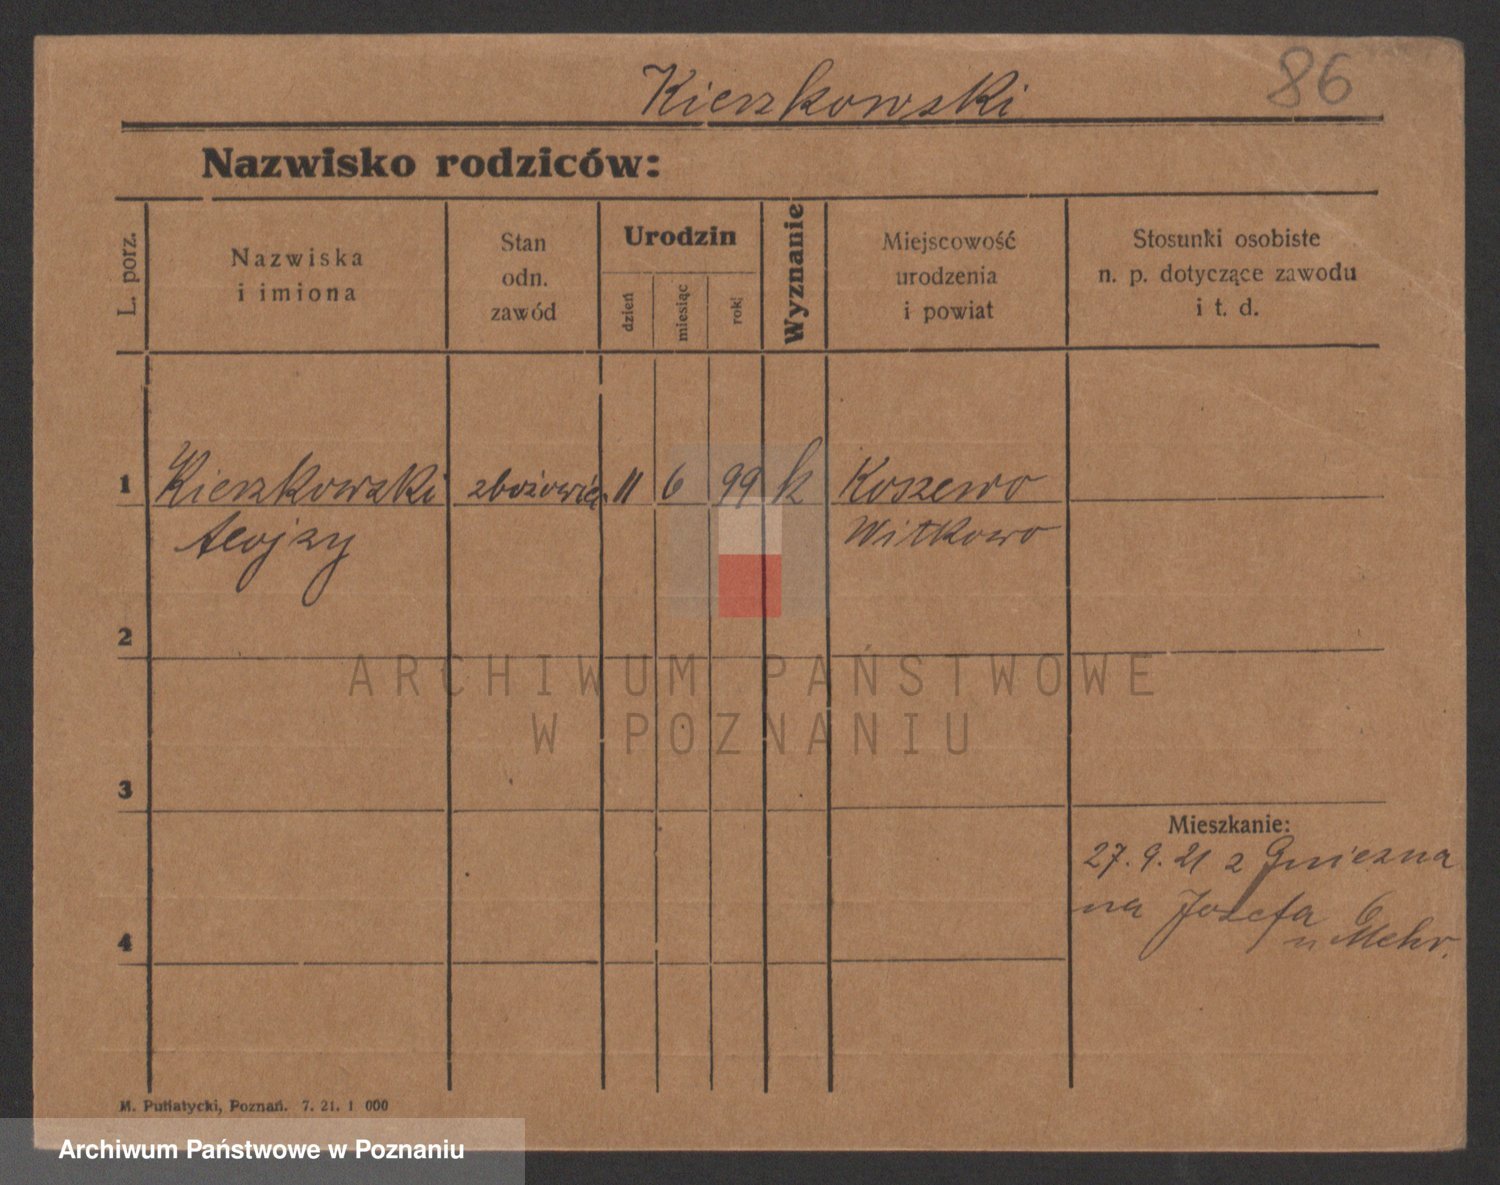 Kierzkowski 86
Nazwisko rodziców:
L. porz.
Nazwiska
i imiona
Stan
odn.
zawód
Urodzin
dzień
miesiąc
rok
Wyznanie
Miejscowość
urodzenia
i powiat
Stosunki osobiste
n. p. dotyczące zawodu
i t. d.
1 Kierzkowski 11 6 99 k
Alojzy
Witkowo
2
ARCHIWUM PAŃSTWOWE
W POZNANIU
3
Mieszkanie:
27. 9. 21 z Gniezna
na Józefa 6
u Mehr.
4
M. Putiatycki, Poznań. 7. 21. 1 000
Archiwum Państwowe w Poznaniu